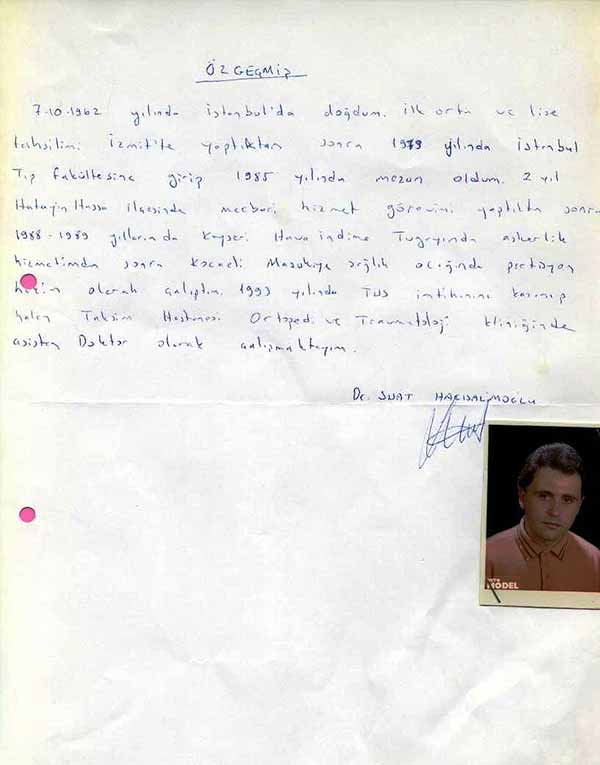 ÖZGEÇMİŞ
7-10-1962 yılında İstanbul'da doğdum. ilk orta ve lise
tahsilimi İzmit'te yaptıktan sonra 1979 yılında İstanbul
Tıp fakültesine girip 1985 yılında mezun oldum. 2 yıl
Hatayin Hassa ilçesinde mecburi hizmet görevini yaptıktan sonra
1988-1989 yıllarında Kayseri Hava indirme Tugayında askerlik
hizmetimden sonra Kocaeli Maşukiye sağlık ocağında pratisyen
olarak çalıştım. 1993 yılında TUS imtihanını kazanıp
halen Taksim Hastanesi Ortopedi ve Travmatoloji kliniğinde
asistan Doktor olarak çalışmaktayım.
Dr. SUAT HACISALİMOĞLU
MODEL